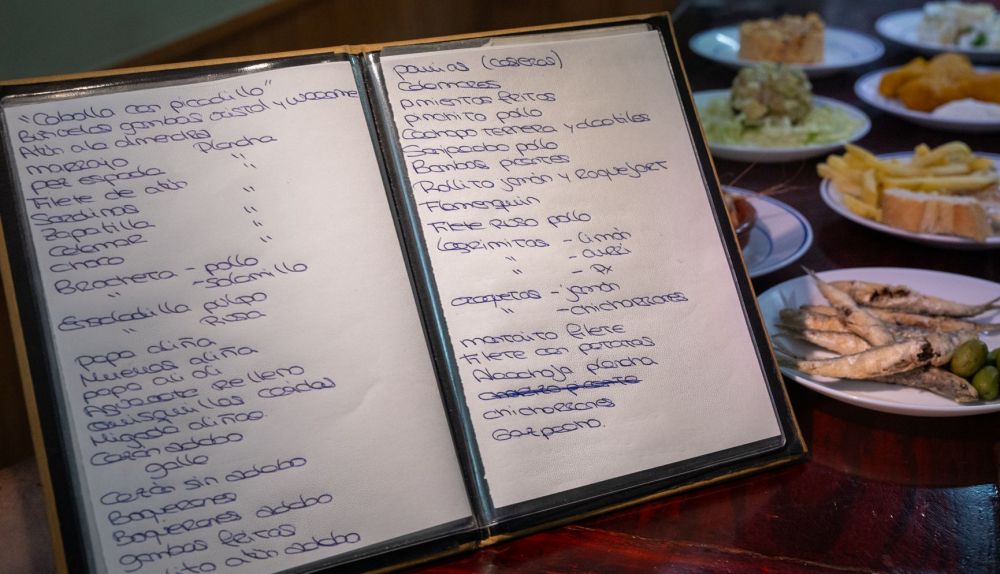 "Caballa con picadillo"
Parrcelas gambas cristal y wakame
Atún a la almendra
marrajo Plancha
pez espada "
Filete de atún "
Sardinas "
Zapatilla "
Calamar "
Choco "
Brocheta - pollo
" - solomillo
Ensaladilla pulpo
" Rusa
papa aliña
Huevas aliña
papa ali oli
Aguacate relleno
Quisquillas cocidas
Higado aliñao
Cazón adobo
gallo
Cazón sin adobo
Boquerones
Boquerones adobo
gambas fritas
atún adobo
pavias (caseras)
Calamares
pimientos fritos
pinchito pollo
Campo ternera y dátiles
San Jacobo pollo
Bombas picantes
Rollito jamón y Roquefort
Flamenquin
Filete Ruso pollo
lagrimitas - limón
" - curri
" - Px
croquetas - jamón
" - chicharrones
montaito filete
Filete con patatas
Alcachofa plancha
chicharrones
Gazpacho.